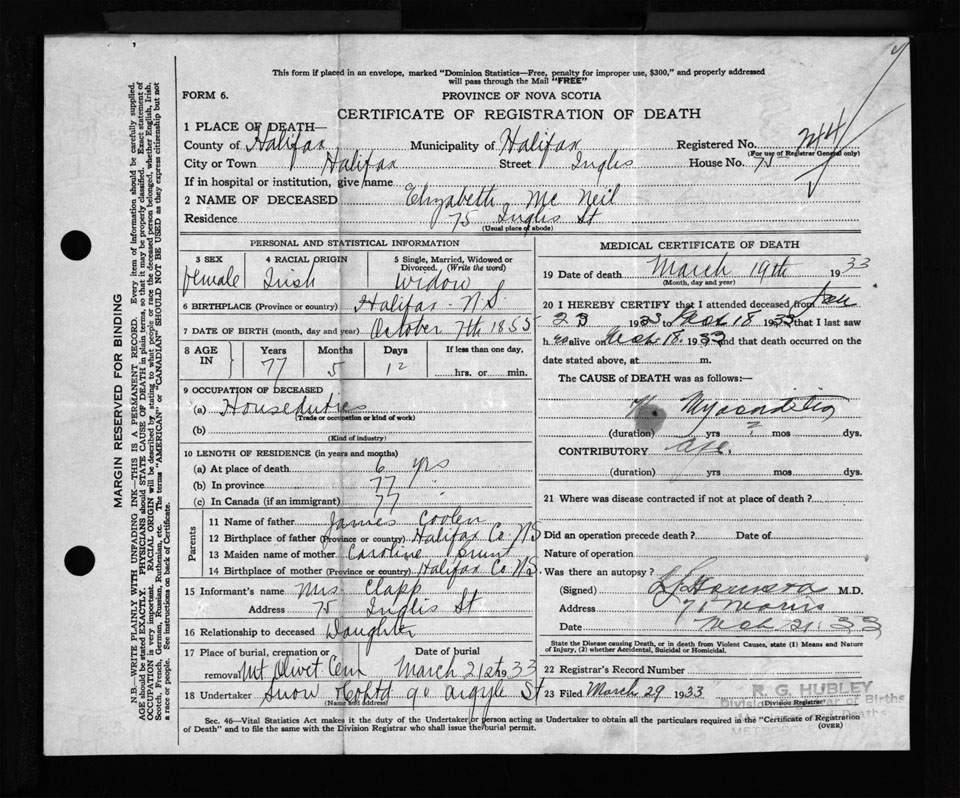 This form if placed in an envelope, marked "Dominion Statistics—Free, penalty for improper use, $300," and properly addressed
will pass through the Mail "FREE"
FORM 6.
PROVINCE OF NOVA SCOTIA
CERTIFICATE OF REGISTRATION OF DEATH
1 PLACE OF DEATH—
County of Halifax Municipality of Halifax Registered No. 744
(For use of Registrar General only)
City or Town Halifax Street Inglis House No. 75
If in hospital or institution, give name
2 NAME OF DECEASED Elizabeth Mc Neil
Residence 75 Inglis St
(Usual place of abode)
PERSONAL AND STATISTICAL INFORMATION
3 SEX 4 RACIAL ORIGIN 5 Single, Married, Widowed or
Divorced. (Write the word)
Female Irish Widow
6 BIRTHPLACE (Province or country) Halifax - N.S.
7 DATE OF BIRTH (month, day and year) October 7th 1855
8 AGE IN Years Months Days If less than one day,
77 5 12 hrs. or min.
9 OCCUPATION OF DECEASED
(a) Houseduties
(Trade or occupation or kind of work)
(b)
(Kind of industry)
10 LENGTH OF RESIDENCE (in years and months)
(a) At place of death 6 yrs
(b) In province 77 "
(c) In Canada (if an immigrant) 77 "
Parents
11 Name of father James Coolen
12 Birthplace of father (Province or country) Halifax Co. N S
13 Maiden name of mother Caroline Brunt
14 Birthplace of mother (Province or country) Halifax Co N S
15 Informant's name Mrs Clapp
Address 75 Inglis St
16 Relationship to deceased Daughter
17 Place of burial, cremation or Date of burial
removal Mt Olivet Cem March 21st 33
18 Undertaker Snow & Co Ltd 90 Argyle St
(Name and address)
MEDICAL CERTIFICATE OF DEATH
19 Date of death March 19th 1933
(Month, day and year)
20 I HEREBY CERTIFY that I attended deceased from
23 1933 to Mch 18 1933 that I last saw
h er alive on Mch 18. 1933 and that death occurred on the
date stated above, at m.
The CAUSE of DEATH was as follows:—
Myocarditis
(duration) yrs ? mos dys.
CONTRIBUTORY age.
(duration) yrs mos dys.
21 Where was disease contracted if not at place of death?
Did an operation precede death? Date of
Nature of operation
Was there an autopsy?
(Signed) M.D.
Address 71 Morris
Date Mch 21. 33
State the Disease causing Death, or in death from Violent Causes, state (1) Means and Nature
of Injury, (2) whether Accidental, Suicidal or Homicidal.
22 Registrar's Record Number
23 Filed March 29 1933 R. G. HUBLEY
(Division Registrar)
Division Registrar of Births
Deaths
Sec. 46—Vital Statistics Act makes it the duty of the Undertaker or person acting as Undertaker to obtain all the particulars required in the "Certificate of Registration
of Death" and to file the same with the Division Registrar who shall issue the burial permit.
(OVER)
MARGIN RESERVED FOR BINDING
N.B.—WRITE PLAINLY WITH UNFADING INK—THIS IS A PERMANENT RECORD. Every item of information should be carefully supplied.
AGE should be stated EXACTLY. PHYSICIANS should STATE CAUSE OF DEATH in plain terms, so that it may be properly classified. Exact statement of
OCCUPATION is very important. RACIAL ORIGIN will be described by stating to what people or race the deceased person belonged, whether English, Irish,
Scotch, French, German, Russian, Ruthenian, etc. The terms "AMERICAN" or "CANADIAN" SHOULD NOT BE USED as they express citizenship but not
a race or people. See instructions on back of Certificate.